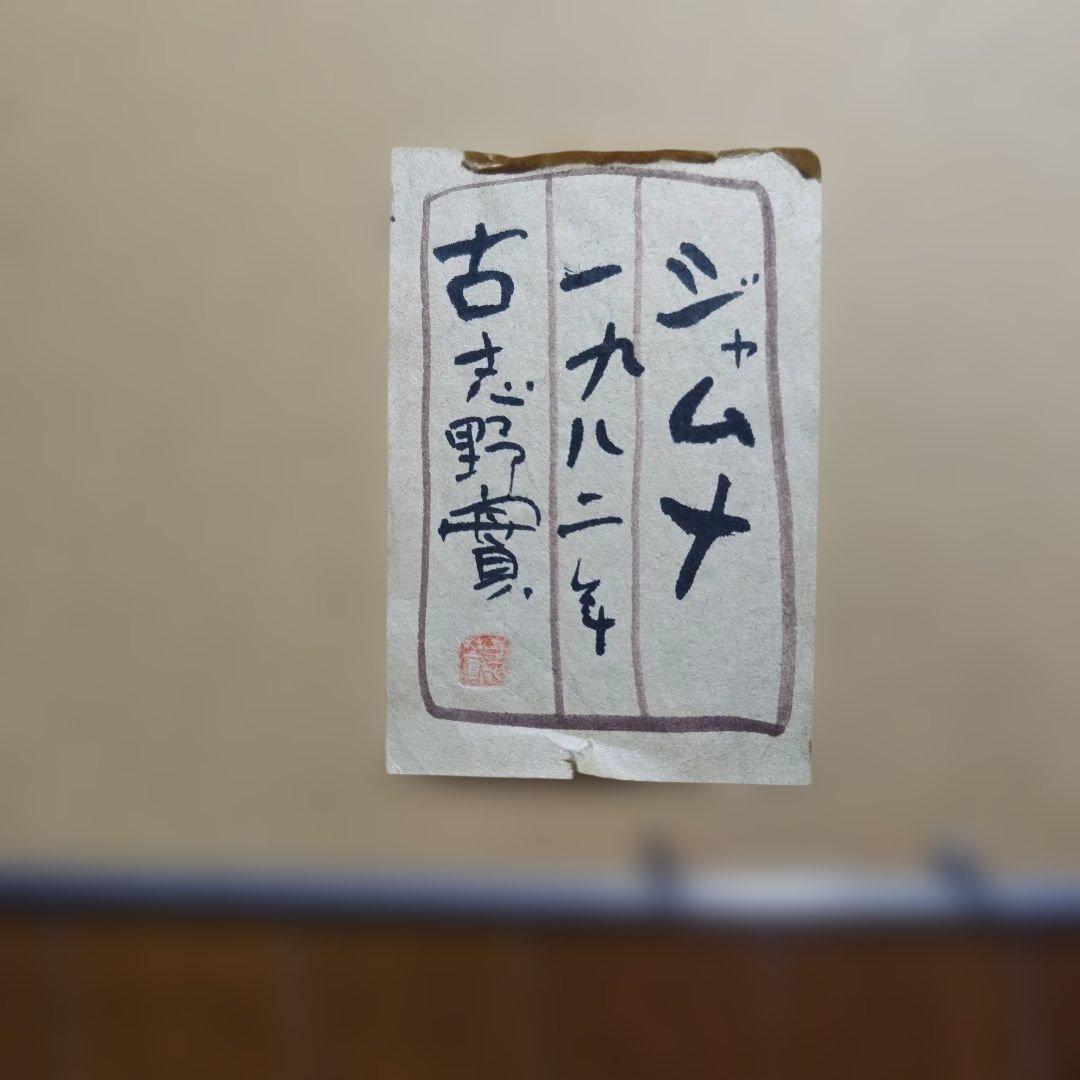 ジャムナ
一九八二年
古志野實